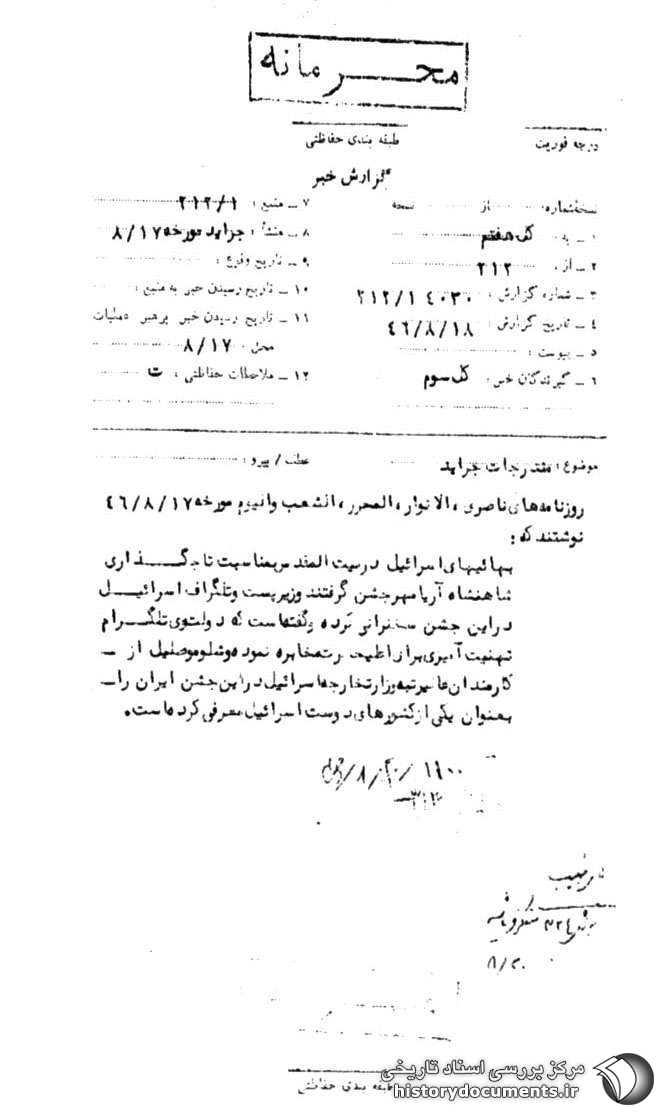 محرمانه
درجه فوریت
طبقه بندی حفاظتی
گزارش خبر
نسخه شماره: از نسخه
۱ ـ به کل هفتم
۲ ـ از: ۲۱۲
۳ ـ شماره گزارش: ۲۱۲/۱ ۴۰۳۰
۴ ـ تاریخ گزارش: ۴۶/۸/۱۸
۵ ـ پیوست:
۶ ـ گیرندگان خبر: کل سوم
۷ ـ منبع: ۲۱۲/۱
۸ ـ منشأ: جراید مورخه ۸/۱۷
۹ ـ تاریخ وقوع:
۱۰ ـ تاریخ رسیدن خبر به منبع:
۱۱ ـ تاریخ رسیدن خبر برهبر عملیات
محل: ۸/۱۷
۱۲ ـ ملاحظات حفاظتی: ت
موضوع: مندرجات جراید
عطف / پیرو:
روزنامه‌های ناصری، الانوار، المحرر، الشعب والیوم مورخه ۴۶/۸/۱۷
نوشتند که:
بهائیهای اسرائیل در بیت المقدس بمناسبت تاجگذاری
شاهنشاه آریامهر جشن گرفتند وزیر پست و تلگراف اسرائیل
در این جشن سخنرانی کرده و گفته است که دولت وی تلگرام
تهنیت آمیزی برای اعلیحضرت مخابره نموده و شلومو صلیل از
کارمندان عالیرتبه وزارتخارجه اسرائیل در این جشن ایران را
بعنوان یکی از کشورهای دوست اسرائیل معرفی کرده است.
۸/۲۰
طبقه بندی حفاظتی
مرکز بررسی اسناد تاریخی
historydocuments.ir